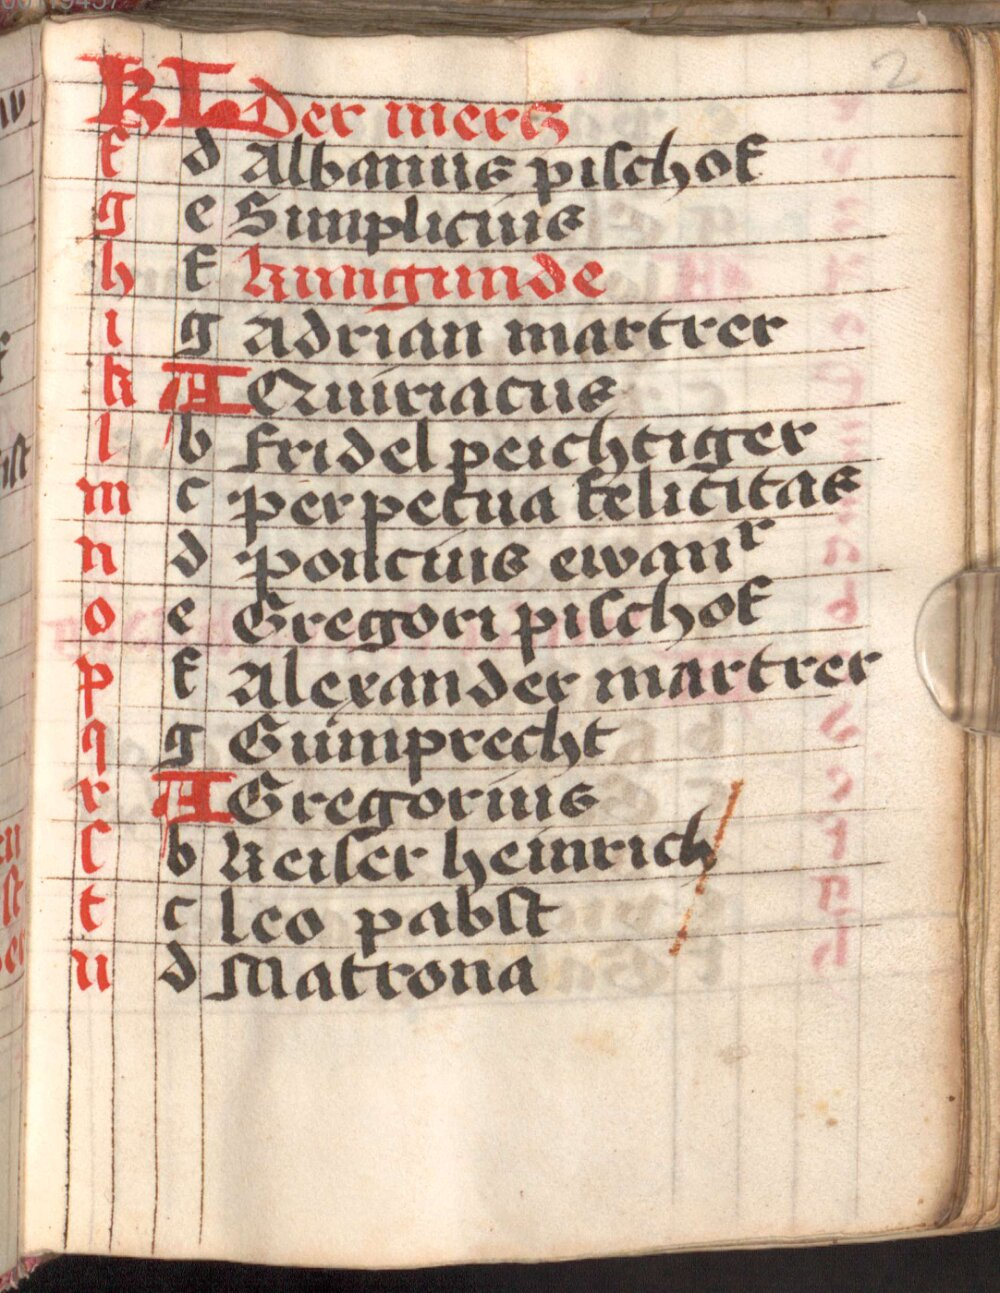 2
KL Der mercz
f d Albanus pischof
g e Simplicius
h f kungunde
i g Adrian martrer
k A Quiriacus
l b fridel peichtiger
m c perpetua felicitas
n d poncius ewanr
o e Gregori pischof
p f Alexander martrer
q g Gumprecht
r A Gregorius
s b keiser heinrich
t c leo pabst
u d Matrona